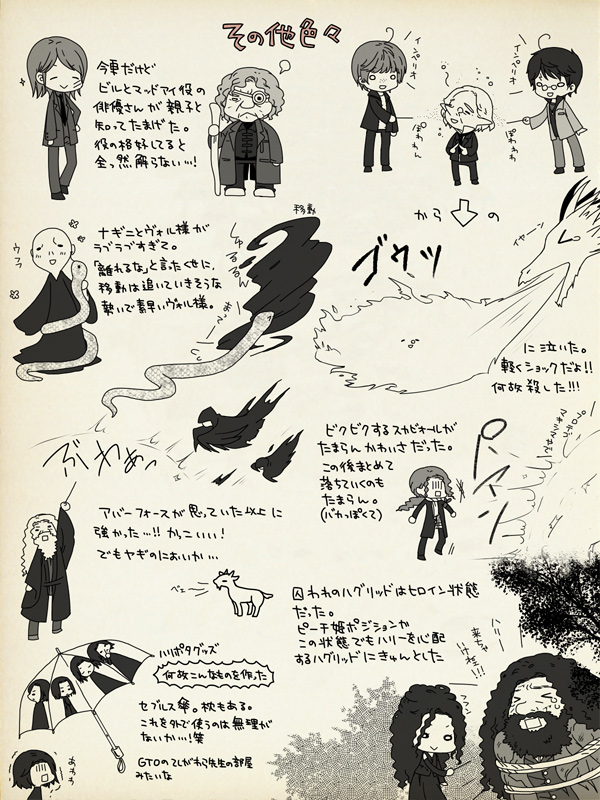 その他色々
今更だけど
ビルとマッドアイ役の
俳優さんが親子と
知ってたまげた。
役の格好してると
全っ然解らない…!
インペリオ
インペリオ
ぽわわん
ぽわわ
から
の
イヤーン
ゴウッ
に泣いた。
軽くショックだよ!!
何故殺した!!!
ウフフ
ナギニとヴォル様が
ラブラブすぎて。
「離れるな」と言ったくせに、
移動は追いていきそうな
勢いで素早いヴォル様。
移動
しゅるるん
まって
ぶわぁっ
アバーフォースが思っていた以上に
強かった…!! かっこいい!
でもヤギのにおいか…
べェ
ビクビクするスカビオールが
たまらんかわいさだった。
この後まとめて
落ちていくのも
たまらん。
(バカっぽくて)
囚われのハグリッドはヒロイン状態
だった。
ピーチ姫ポジションか
この状態でもハリーを心配
するハグリッドにきゅんとした
ハリー
来ちゃ
いけねぇ!!
フフン
ハリポタグッズ
何故こんなものを作った
セブルス傘。枕もある。
これを外で使うのは無理が
ないか…!笑
GTOのてしがわら先生の部屋
みたいな
あわわ